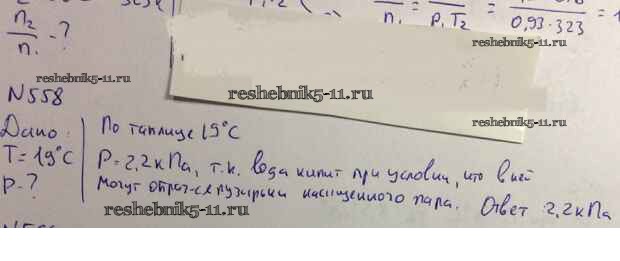 n₂/n₁ - ?
n₁ = p₁T₂ = 0,93·323 =
reshebnik5-11.ru
reshebnik5-11.ru
reshebnik5-11.ru
N558
Дано: По таблице 19°C
T = 19°C P = 2,2кПа, т.к. вода кипит при условии, что в ней
p - ? могут образ-ся пузырьки насыщенного пара. Ответ 2,2кПа
reshebnik5-11.ru